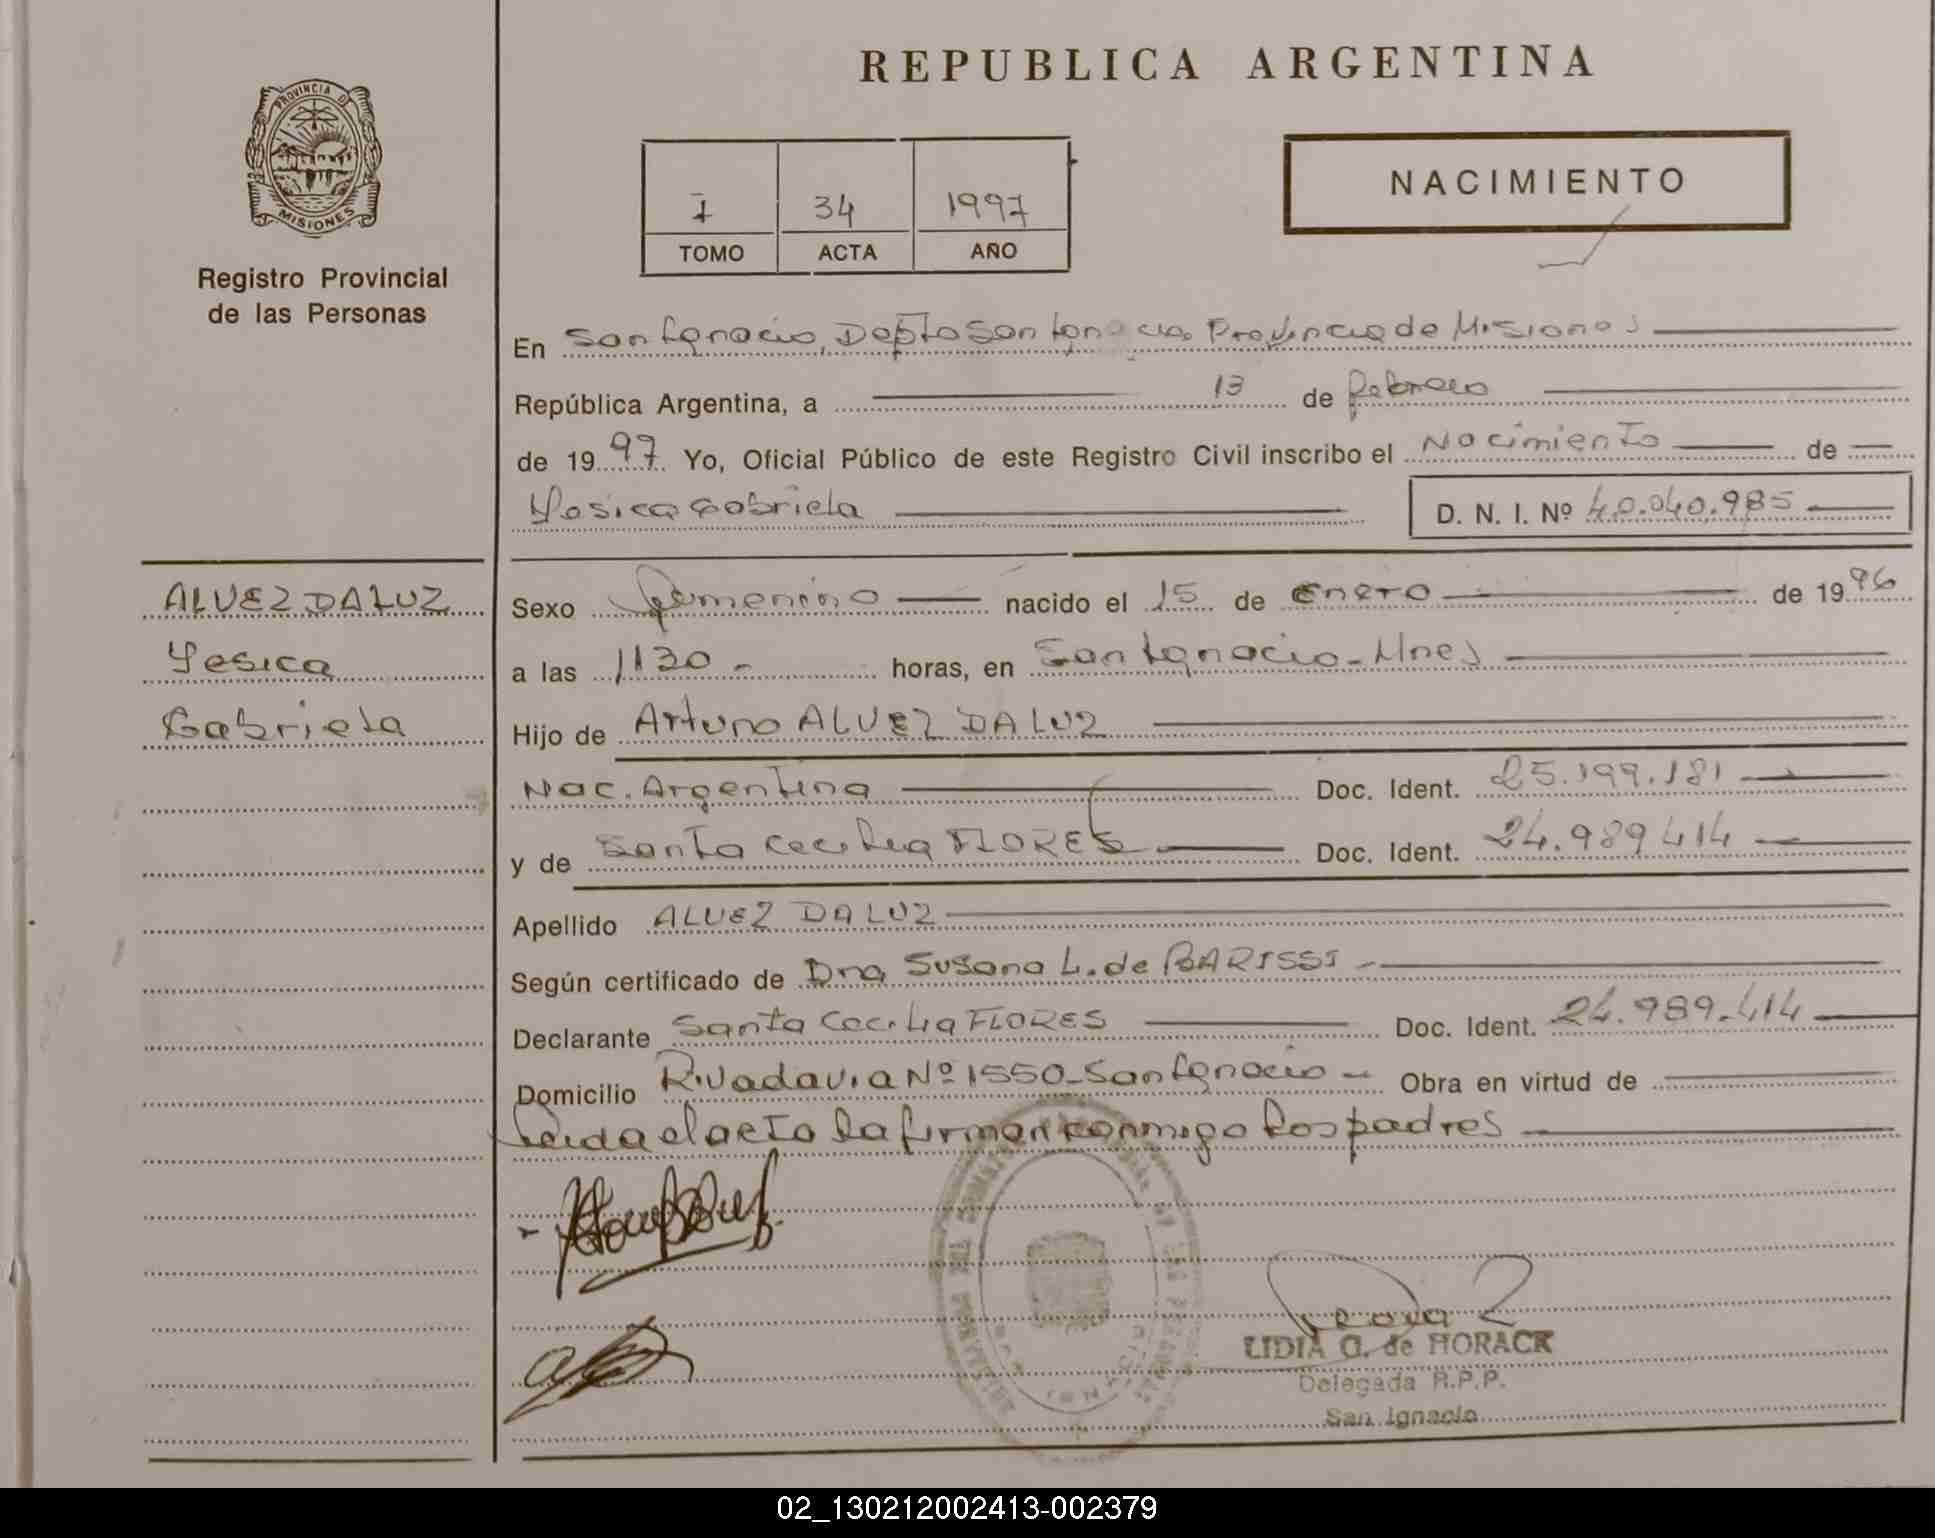 REPUBLICA ARGENTINA
PROVINCIA DE
MISIONES
Registro Provincial
de las Personas
1 34 1997
TOMO ACTA AÑO
NACIMIENTO
En San Ignacio, Depto San Ignacio, Provincia de Misiones
República Argentina, a 13 de febrero
de 1997 Yo, Oficial Público de este Registro Civil inscribo el Nacimiento de
Yesica Gabriela D. N. I. Nº 40.040.985
ALVEZ DA LUZ
Yesica
Gabriela
Sexo femenino nacido el 15 de enero de 1996
a las 1130 horas, en San Ignacio - Mnes
Hijo de Arturo ALVEZ DA LUZ
Nac. Argentina Doc. Ident. 25.199.181
y de Santa Cecilia FLORES Doc. Ident. 24.989.414
Apellido ALVEZ DA LUZ
Según certificado de Dra Susana L. de BARISSI
Declarante Santa Cecilia FLORES Doc. Ident. 24.989.414
Domicilio Rivadavia Nº 1550 - San Ignacio Obra en virtud de
Leida el acta la firman conmigo los padres
LIDIA G. de HORACK
Delegada R.P.P.
San Ignacio
02_130212002413-002379